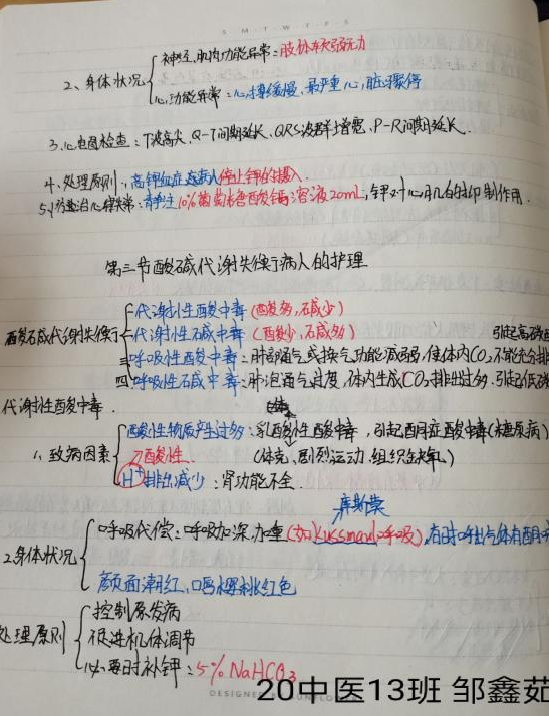 S M T W T F S
神经、肌肉功能异常:肢体软弱无力
2、身体状况
心功能异常:心搏缓慢,最严重心脏骤停
3、心电图检查:T波高尖、Q-T间期延长、QRS波群增宽、P-R间期延长.
4、处理原则:高钾血症病人停止钾的摄入.
5、防治心律失常:静注10%葡萄糖酸钙溶液20mL,钾对心肌的抑制作用.
第三节酸碱代谢失衡病人的护理
代谢性酸中毒(酸多,碱少)
酸碱代谢失衡 代谢性碱中毒(酸少,碱多) 引起高碳
三呼吸性酸中毒:肺部通气或换气功能减弱,使体内CO₂不能充分排
四呼吸性碱中毒:肺泡通气过度,体内生成CO₂排出过多,引起低碳
代谢性酸中毒.
酸性物质产生过多:乳酸性酸中毒,引起酮症酸中毒(糖尿病)
1、致病因素 (休克,剧烈运动,组织缺氧)
H⁺排出减少:肾功能不全.
库斯莫
呼吸代偿:呼吸加深,加重(如Kussmaul呼吸),有时呼出气体有酮
2、身体状况
颜面潮红,口唇樱桃红色
控制原发病
处理原则 促进机体调节
必要时补钾:5%NaHCO₃
DESIGNE
20中医13班 邹鑫茹